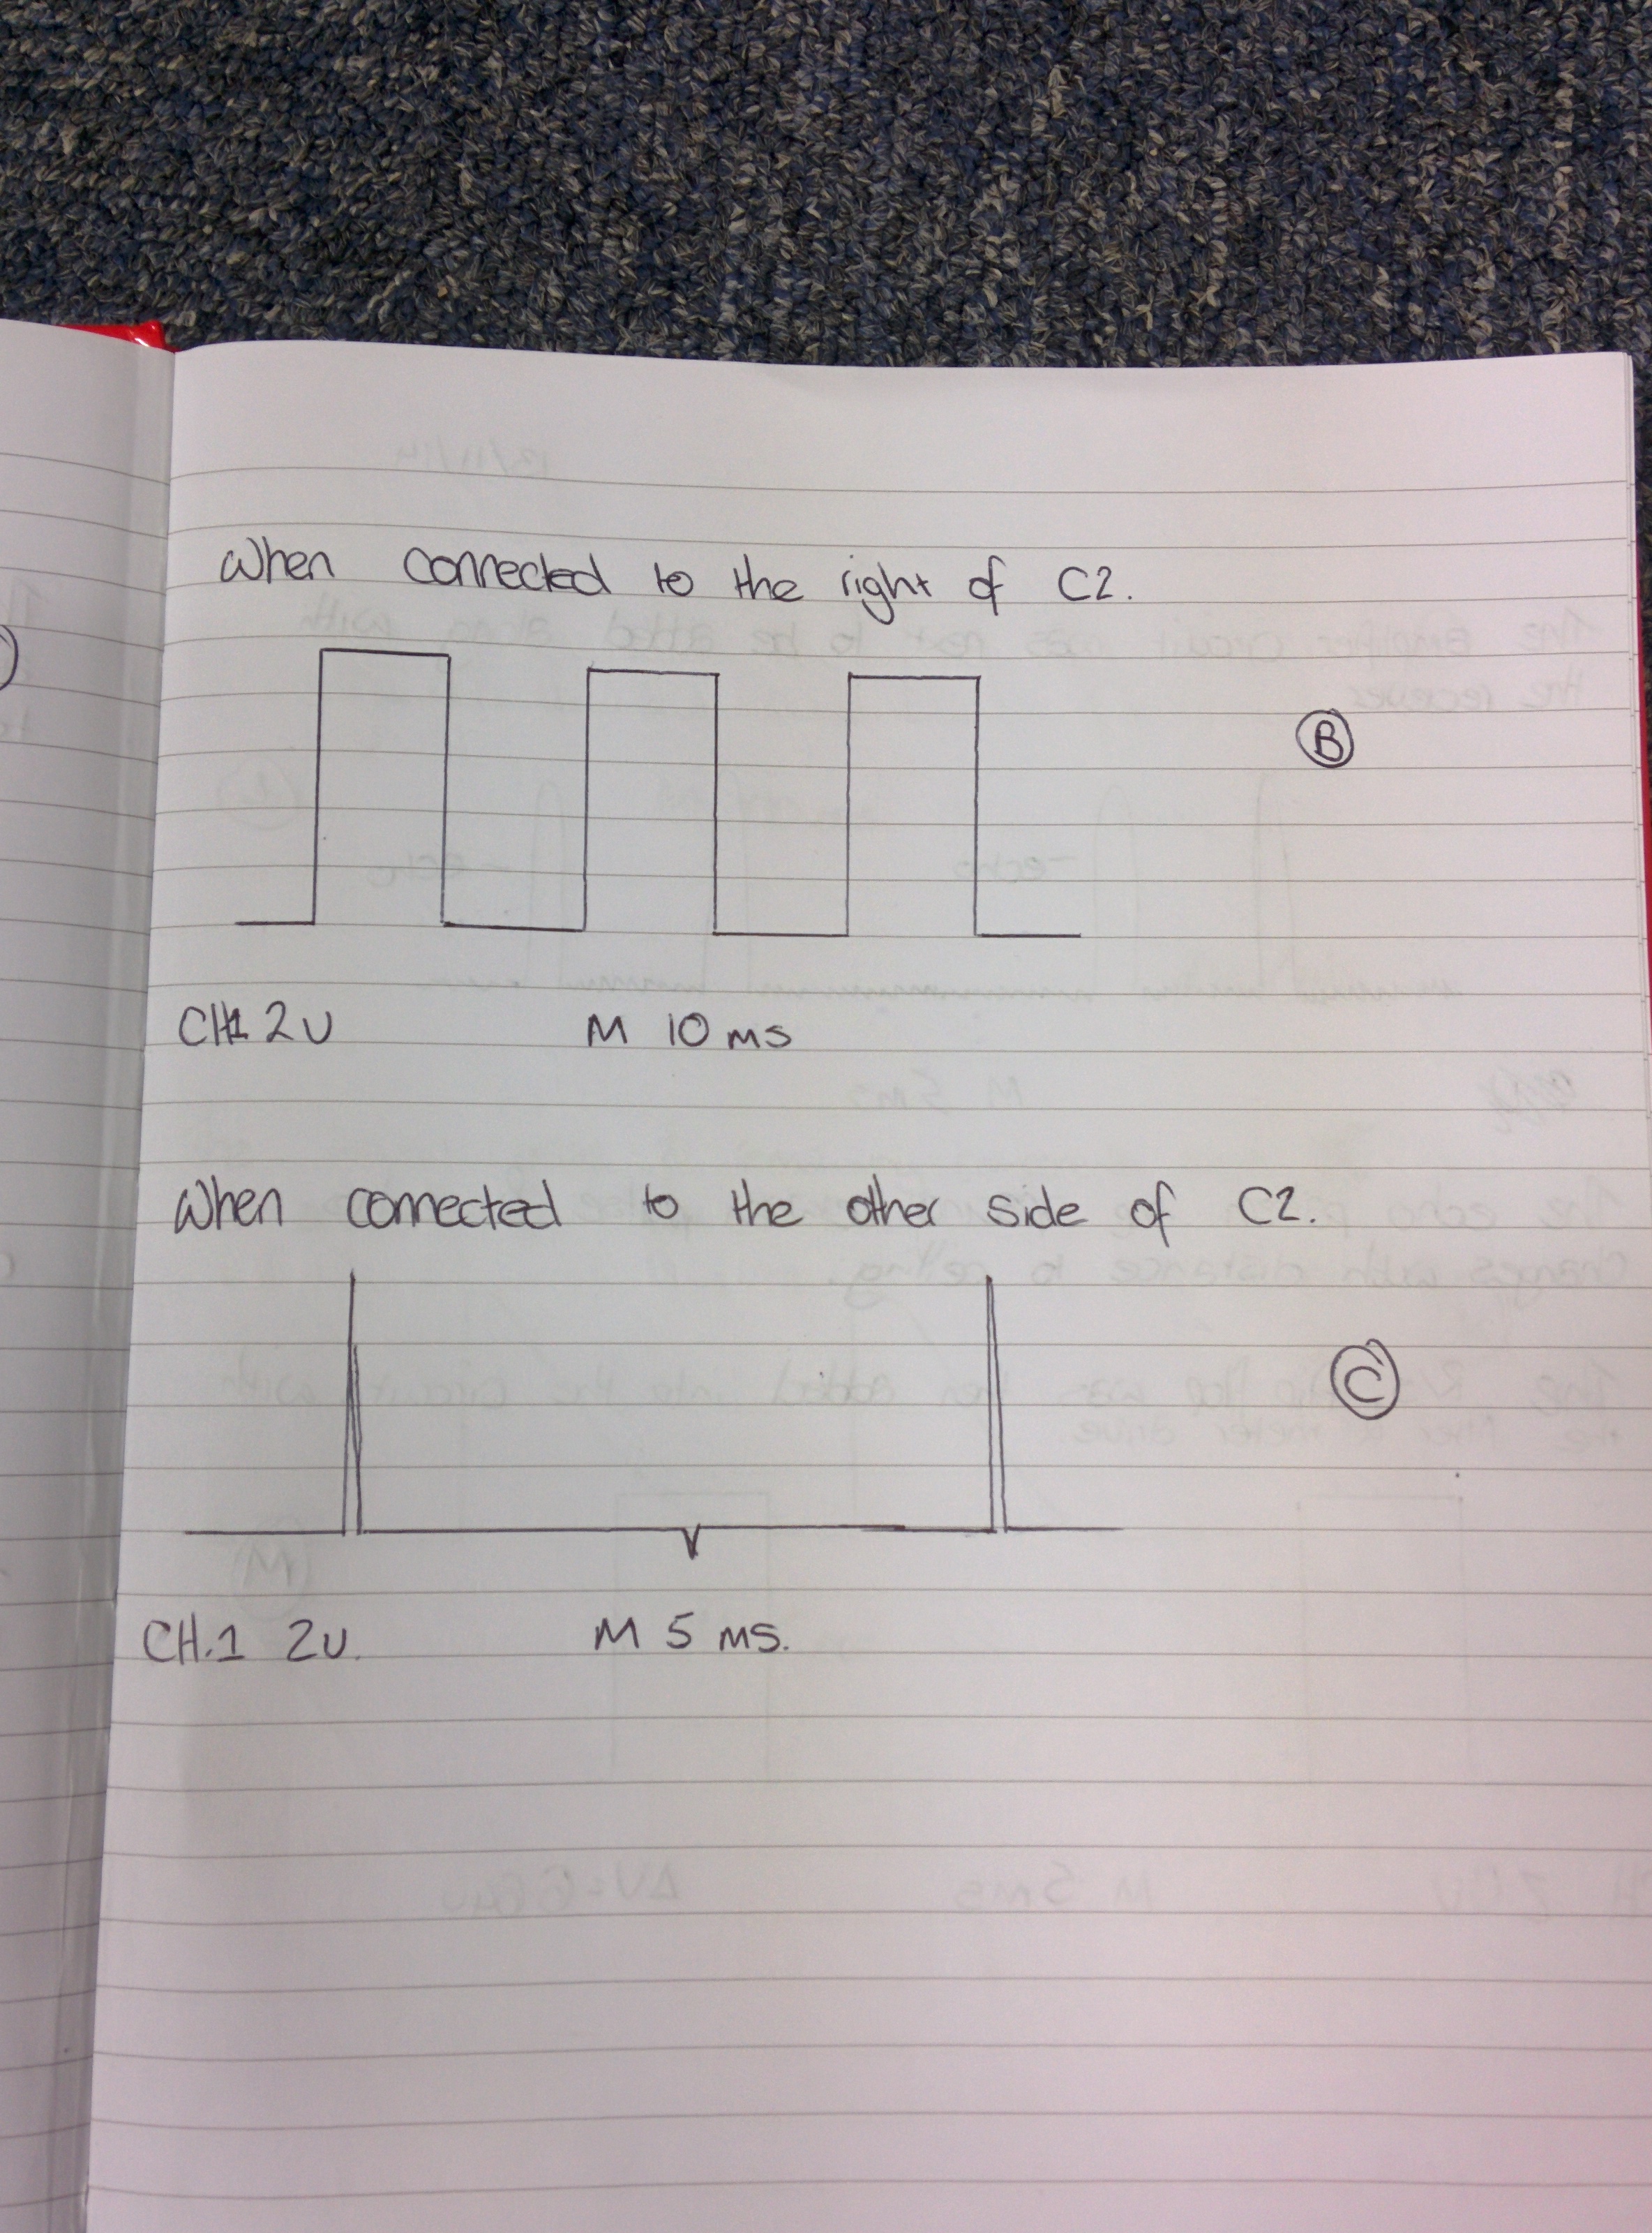 When connected to the right of C2.
B
CH1 2V M 10 ms
When connected to the other side of C2.
C
CH.1 2V. M 5 ms.